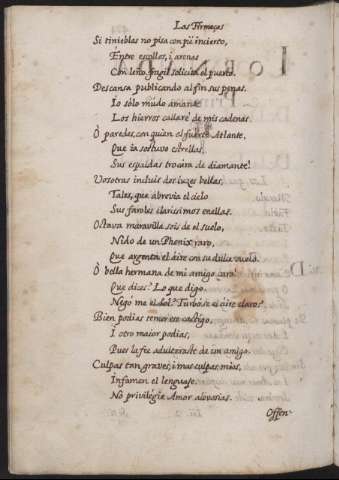 Las Firmezas
Si tinieblas no pisa con piè incierto,
Entre escollos, i arenas
Con leño fragil solicita el puerto.
Descansa publicando al fin sus penas.
Io solo mudo amante
Los hierros callarè de mis cadenas
O paredes, con quien el fuerte Atlante,
Que ia sostuvo estrellas,
Sus espaldas trocàra de diamante!
Vosotras incluìs dos luzes bellas,
Tales, que abrevia el cielo
Sus faroles clarissimos en ellas.
Octava maravilla sois de el suelo,
Nido de un Phenix raro,
Que argenta el aire con su dulce vuelo.
O bella hermana de mi amigo caro!
Que dices? Lo que digo.
Negome el sol? Turbose el aire claro?
Bien podias temer ese castigo,
I otro maior podias,
Pues la fee adulteraste de un amigo.
Culpas tan graves, i mas culpas mias,
Infamen el lenguage.
No privilegie Amor alevosias.
Offen-